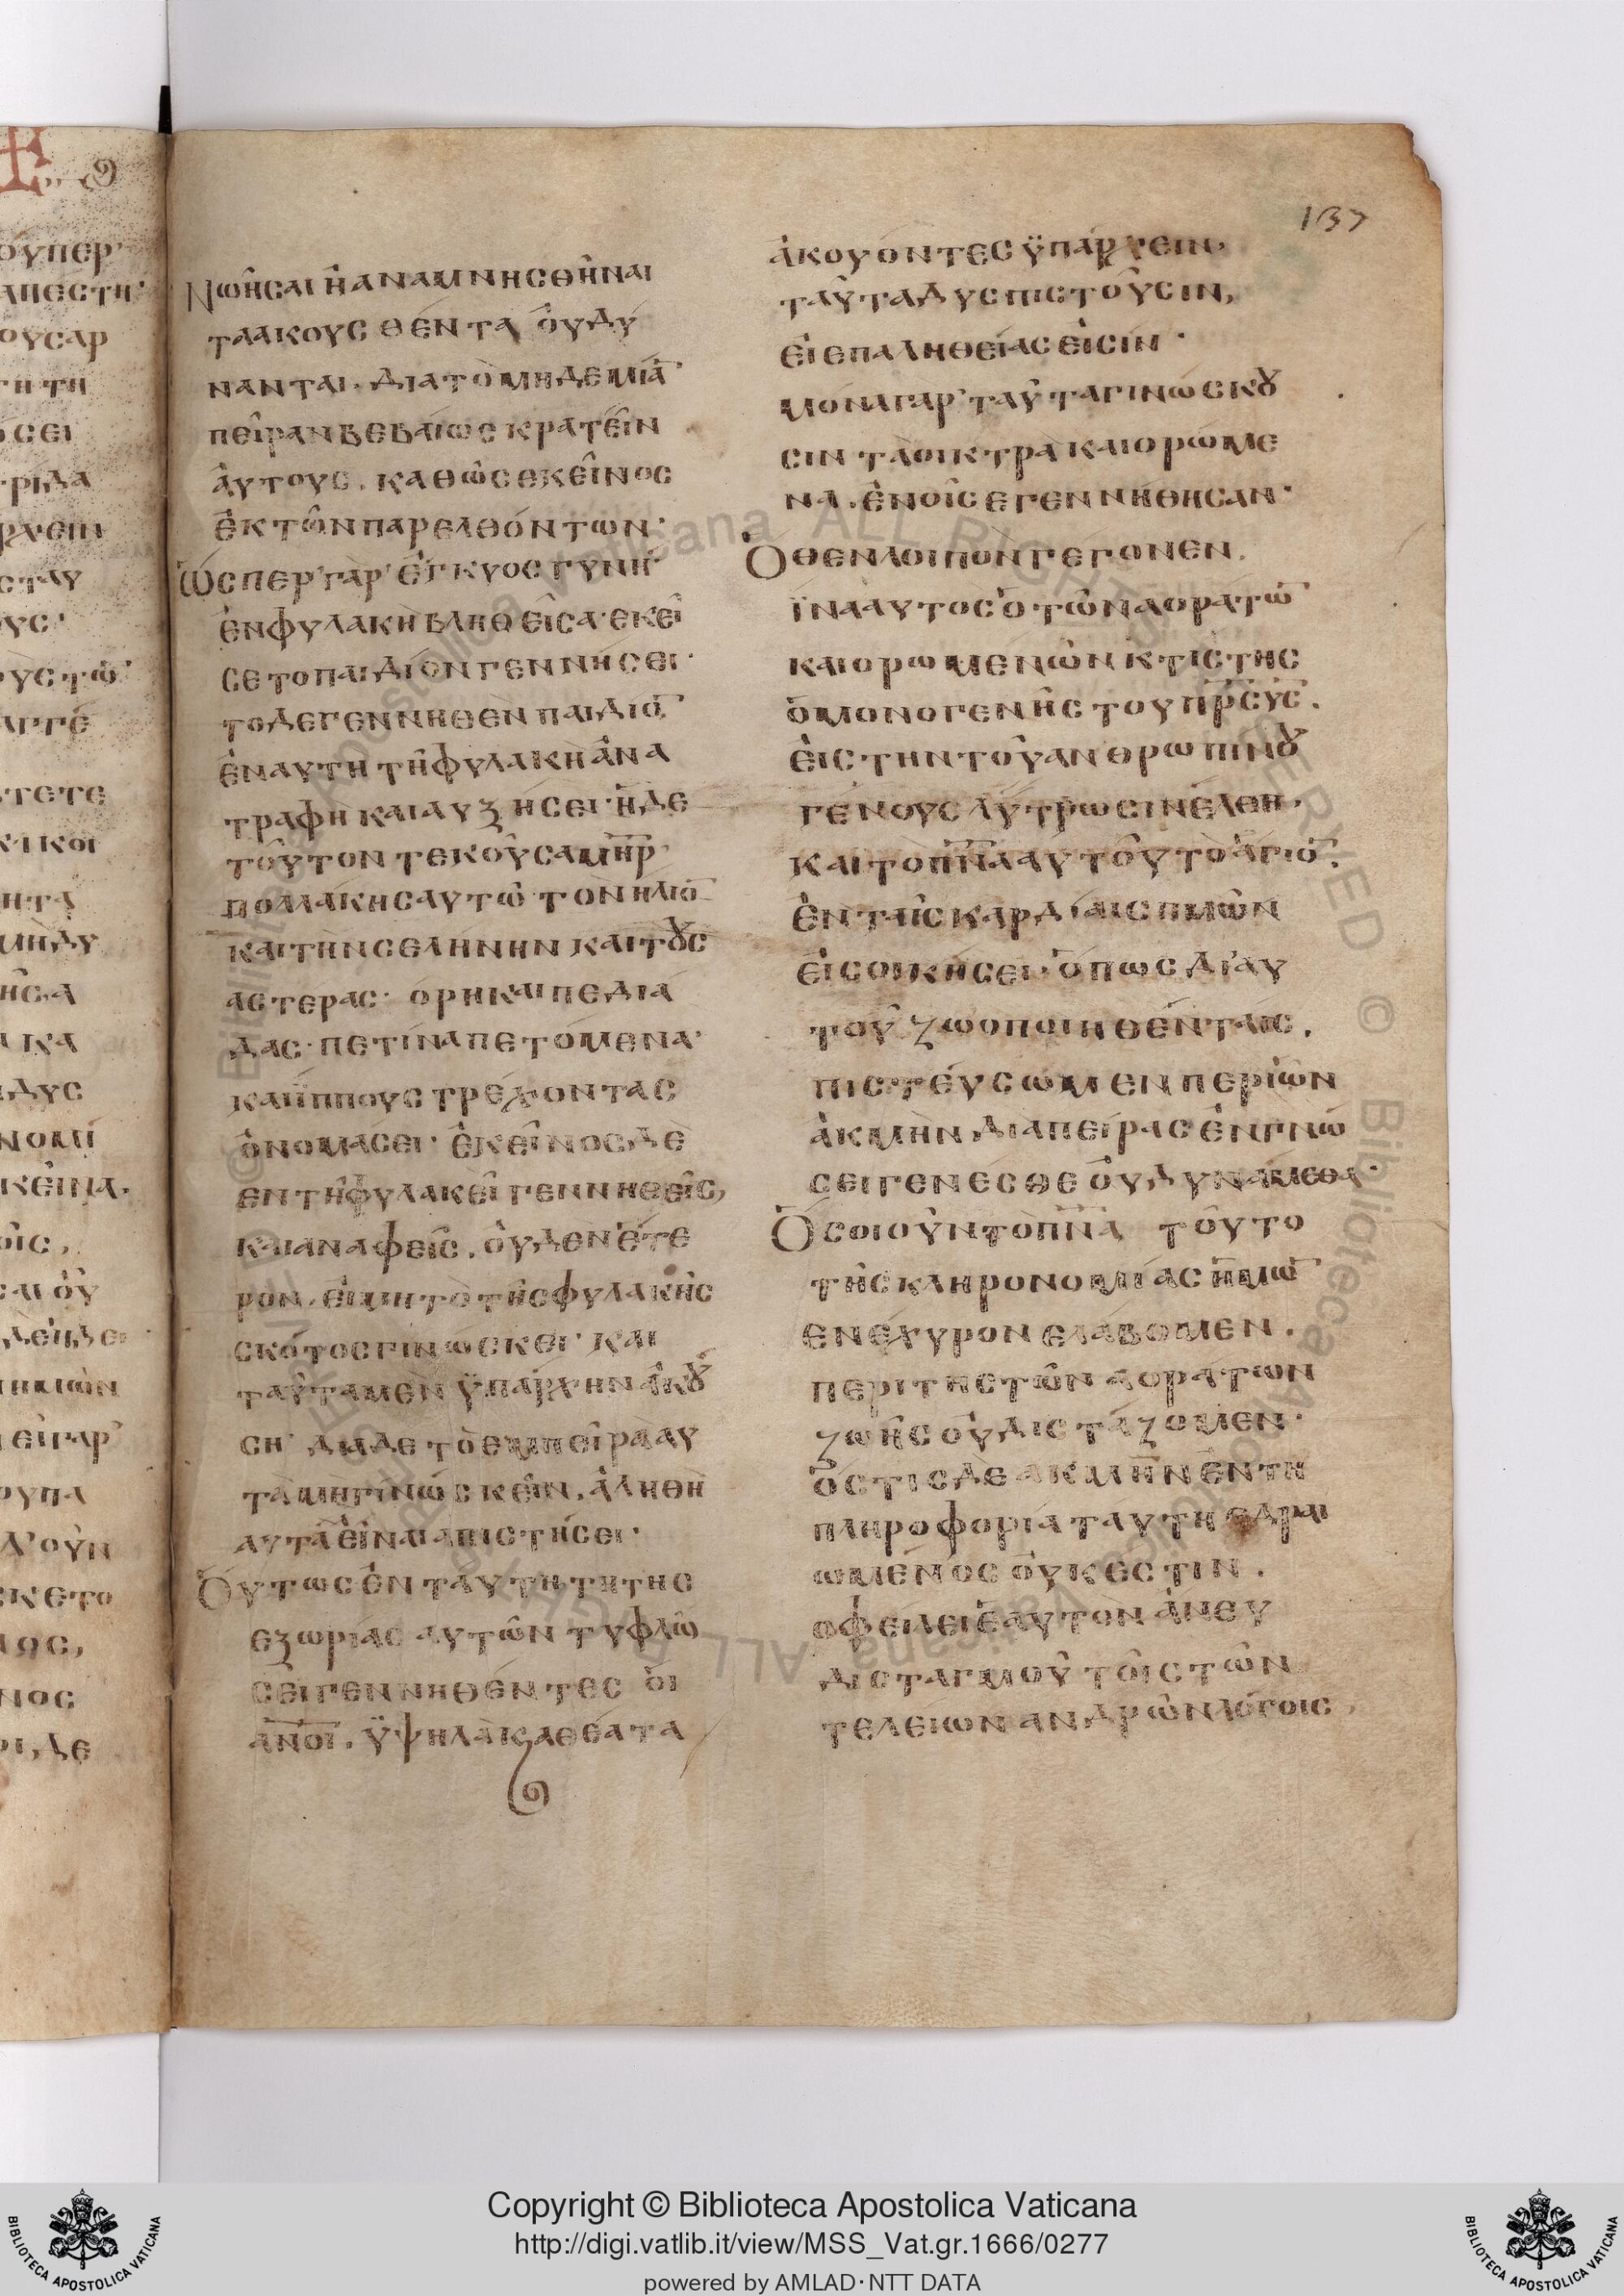 137
Νωῆσαι ἢ ἀναμνησθῆναι
τὰ ἀκουσθέντα οὐ δύ
νανται. διὰ τὸ μηδεμίᾱ
πεῖραν βεβαίως κρατεῖν
αὐτούς. καθὼς ἐκεῖνος
ἐκ τῶν παρελθόντων·
Ὥσπερ γὰρ ἔγκυος γυνὴ
ἐν φυλακῇ βληθεῖσα· ἐκεῖ
σε τὸ παιδίον γεννήσει·
τὸ δὲ γεννηθὲν παιδίο̅
ἐν αὐτῇ τῇ φυλακῇ ἀνα
τραφῇ καὶ αὐξήσει· ἡ δὲ
τοῦτον τεκοῦσα μ̅η̅ρ̅
πολλάκης αὐτῷ τὸν ἥλιο̅
καὶ τὴν σελήνην καὶ τοὺς
ἀστέρας· ὄρη καὶ πεδιά
δας· πετινὰ πετόμενα·
καὶ ἵππους τρέχοντας
ὀνομάσει· ἐκεῖνος δὲ
ἐν τῇ φυλακεῖ γεννηθεὶς,
καὶ ἀναφεὶς. οὐδὲν ἕτε
ρον. εἰ μὴ τὸ τῆς φυλακῆς
σκότος γινώσκει· καὶ
ταῦτα μὲν ὑπάρχην ἀκού
ση· διὰ δὲ τὸ ἐμπείρα αὐ
τὰ μὴ γινώσκειν. ἀληθῆ
αὐτὰ εἶναι ἀπιστήσει·
Οὕτως ἐν ταύτῃ τῇ τῆς
ἐξωρίας αὐτῶν τυφλώ
σει γεννηθέντες οἱ
α̅ν̅ο̅ι̅. ὑψηλὰ κ ἀθέατα
ἀκούοντες ὑπάρχειν,
ταῦτα δυσπιστοῦσιν,
εἰ ἐπ' ἀληθείας εἰσίν·
μόνα γὰρ ταῦτα γινώσκου
σιν τὰ οἰκτρὰ καὶ ὁρώμε
να. ἐν οἷς ἐγεννήθησαν·
Ὅθεν λοιπὸν γέγονεν.
ἵνα αὐτὸς ὁ τῶν ἀοράτω̅
καὶ ὁρωμένων κτίστης
ὁ μονογενὴς τοῦ π̅ρ̅ς̅ υ̅ς̅.
εἰς τὴν τοῦ ἀνθρωπίνου
γένους λύτρωσιν ἔλθῃ,
καὶ τὸ π̅ν̅α̅ αὐτοῦ τὸ ἅγιο̅.
ἐν ταῖς καρδίαις ημῶν
εἰσοικήσει· ὅπως δι' αὐ
τοῦ ζωοποιηθέντες.
πιστεύσωμεν περὶ ὧν
ἀκμὴν διὰ πείρας ἐν γνώ
σει γενέσθε οὐ δυνάμεθα·
Ὅσοι οὖν τὸ π̅ν̅α̅ τοῦτο
τῆς κληρονομίας ἡμῶ̅
ἐνέχυρον ἐλάβομεν.
περὶ τῆς τῶν ἀοράτων
ζωῆς οὐ διστάζομεν·
ὅστις δὲ ἀκμὴν ἐν τῇ
πληροφορίᾳ ταύτῃ ἑδραι
ωμένος οὐκ ἔστιν.
ὀφείλει ἑαυτὸν ἄνευ
δισταγμοῦ τοῖς τῶν
τελείων ἀνδρῶν λόγοις
Copyright © Biblioteca Apostolica Vaticana
http://digi.vatlib.it/view/MSS_Vat.gr.1666/0277
powered by AMLAD·NTT DATA
BIBLIOTECA APOSTOLICA VATICANA
BIBLIOTECA APOSTOLICA VATICANA